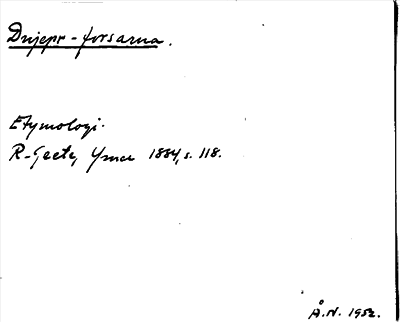 Dnjepr-forsarna.
Etymologi.
R. Geete, Ymer 1884, s. 118.
Å.N. 1952.